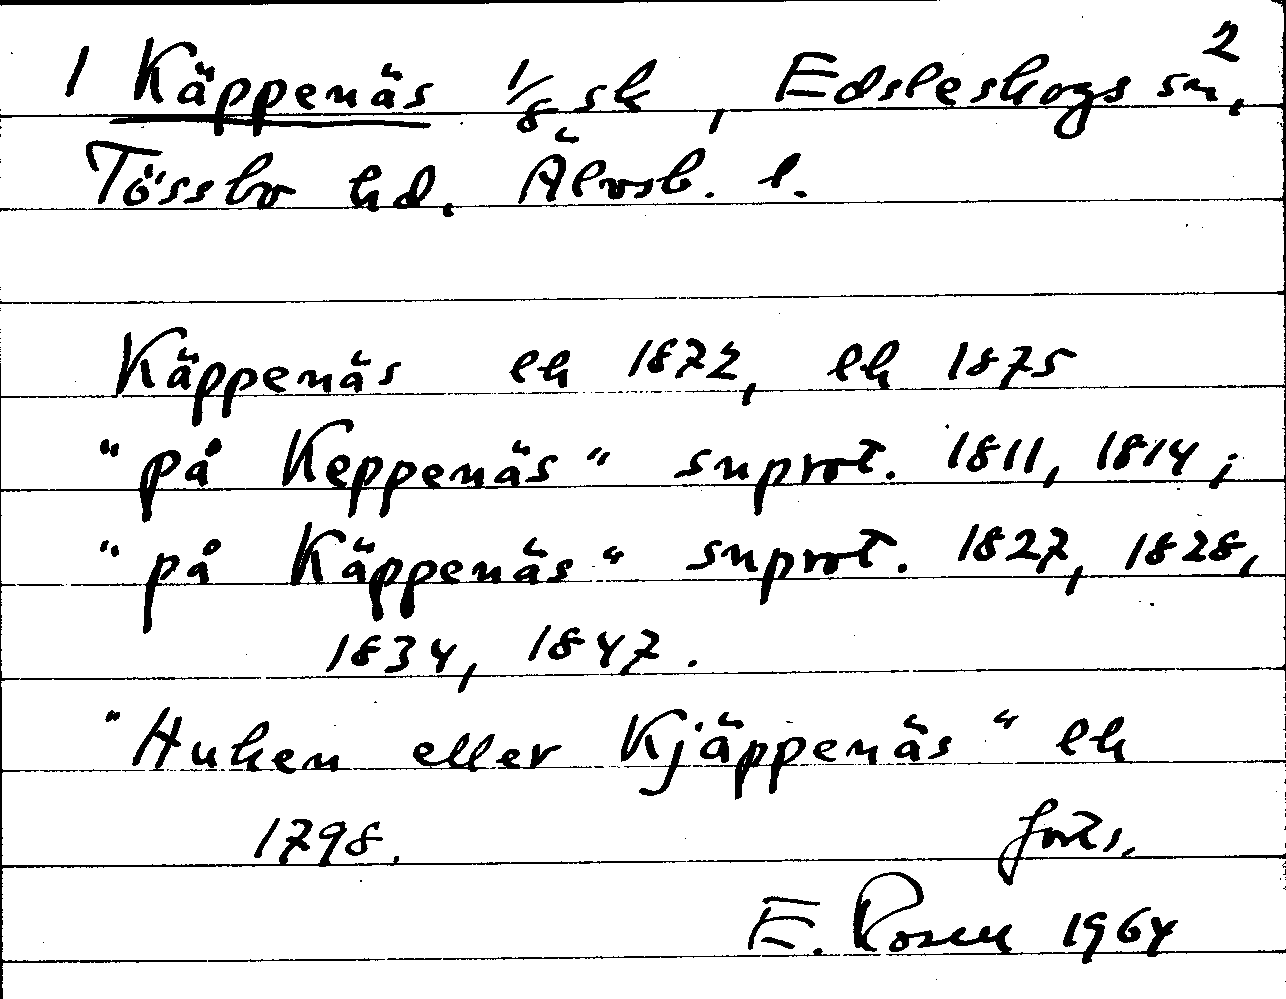 2
1 Käppenäs 1/8 sk, Edsleskogs sn,
Tössbo hd. Älvsb. l.
Käppenäs ek 1872, ek 1875
"på Keppenäs" snprot. 1811, 1814;
"på Käppenäs" snprot. 1827, 1828,
1834, 1847.
"Huken eller Kjäppenäs" ek
1798. forts.
E. Rosen 1964